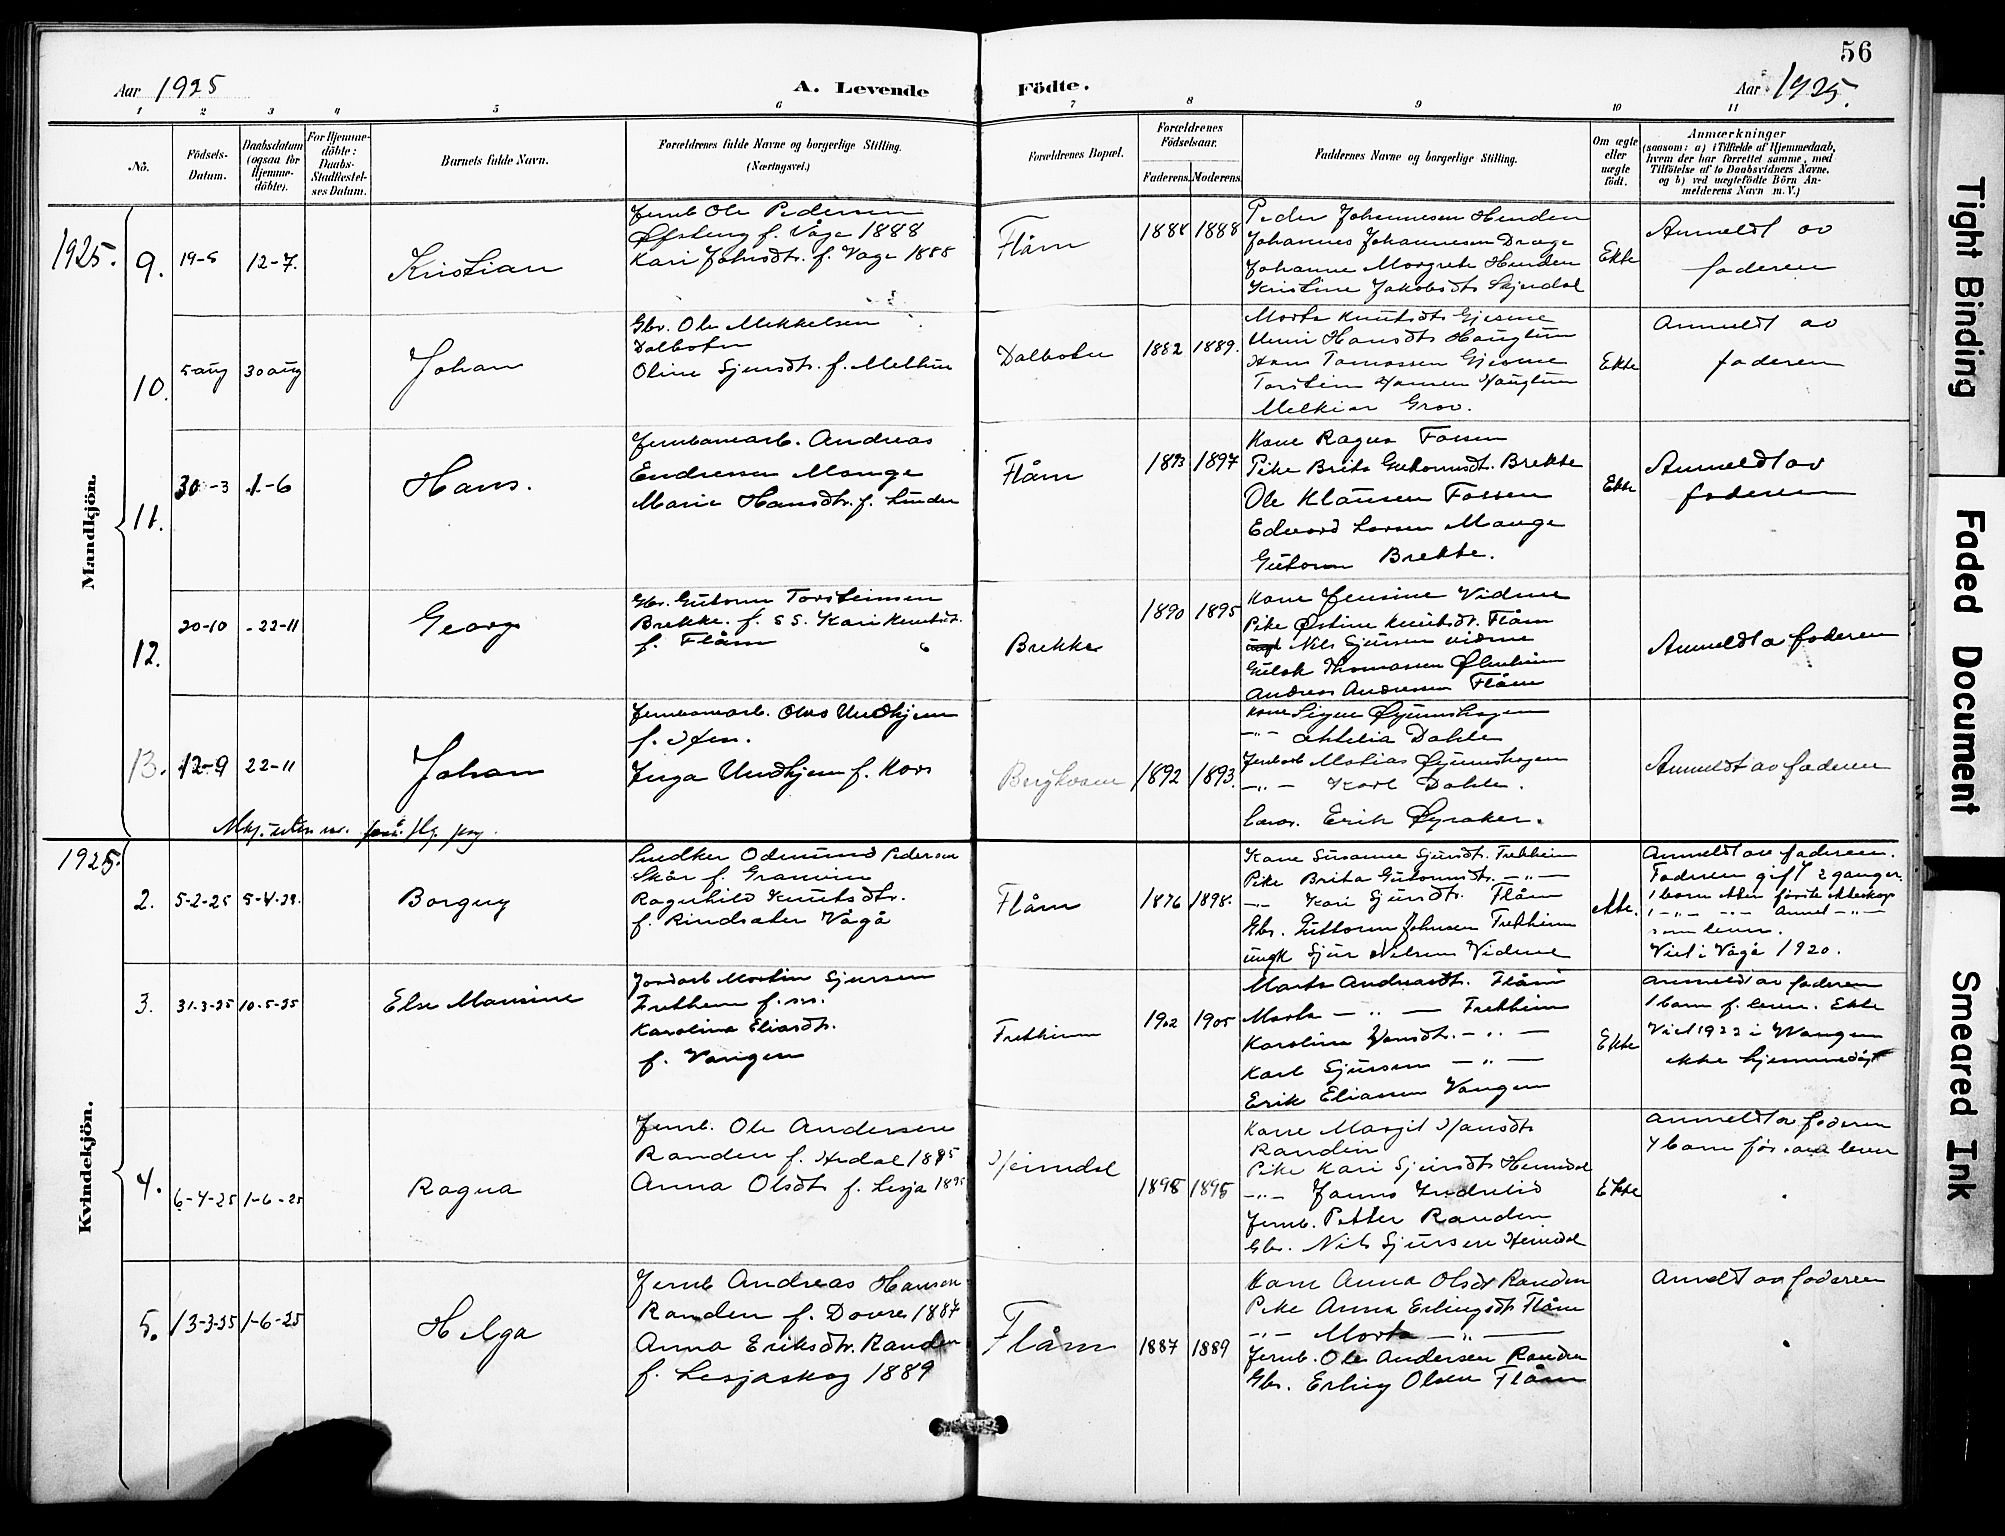 56
Aar 1925
A. Levende
Födte.
Aar 1925.
1 2 3 4 5 6 7 8 9 10 11
No.
Födsels-Datum.
Daabsdatum (ogsaa for Hjemme-döbte).
For Hjemme-döbte: Daabs-Stadfæstel-ses Datum.
Barnets fulde Navn.
Forældrenes fulde Navne og borgerlige Stilling.
(Næringsvei.)
Forældrenes Bopæl.
Forældrenes Födselsaar.
Faderens. Moderens.
Faddernes Navne og borgerlige Stilling.
Om ægte eller uægte födt.
Anmærkninger
(saasom: a) i Tilfælde af Hjemmedaab,
hvem der har forrettet samme, med
Tilföielse af to Daabsvidners Navne,
og b) ved uægtefödte Börn An-
melderens Navn m. V.)
Mandkjön.
1925.
9. 19-5 12-7. Kristian
Jernb Ole Pedersen
Øfsteng f. Våge 1888
Kari Johnsdtr. f. Vage 1888
Flåm
1884 1888
Peder Johannesen Henden
Johannes Johannesen Dræge
Johanne Margrete Henden
Kristine Jakobsdtr Skjerdal
Ekte
Anmeldt av
faderen
10. 5 aug 30 aug Johan
Gbr. Ole Mikkelsen
Dalbotn
Oline Sjursdtr. f. Melhus
Dalbotn
1882 1889.
Marta Knutsdt Gjesme
Unni Hansdtr Haugtun
Hans Tomassen Gjesme
Torstein Hansen Haugtun
Melkior Grov.
Ekte
Anmeldt av
faderen
11. 30-3 1-6 Hans.
Jernbanearb. Andreas
Endresen Mange
Marie Hansdtr. f. Linder
Flåm
1893 1897
Kone Ragna Fossen
Pike Brita Gutormsdt. Brekke
Ole Klausen Fossen
Edvard Larsen Mange
Gutorm Brekke.
Ekte
Anmeldt av
faderen
12. 20-10 22-11 Georg
Gbr. Gutorm Torsteinsen
Brekke. f. s s. Kari Knutsdt.
f. Flåm
Brekke
1890 1895
Kone Jensine Vidme
Pike Østine Knutsdt. Flåm
Nils Sjursen Vidme
Gulak Thomassen Ølenheim
Andreas Andersen Flåm
Anmeldt av faderen
13. 12-9 22-11 Johan
Jernbanearb. Olav Undhjem
Inga Undhjem f. Kors
Berghvam
1892 1893.
Kone Signe Øyumshagen
-"- Dahle
Jernbarb Matias Øyumshagen
-"- Karl Dahle.
Erik Øyraker.
Anmeldt av faderen
Kvindekjön.
1925.
2. 5-2-25 5-4-25. Borguy
Snedker Odmund Pedersen
Skår f. Granvin
Ragnhild Knutsdtr.
f. Rindsæter Vågå
Flåm
1876 1898.
Kone Susanne Sjursdt. Fretheim
Pike Brita Gutormsdt. -"-
-"- Kari Sjursdt. Flåm
Gbr. Guttorm Johnsen Fretheim
ungk Sjur Nilsen Vidme
Ekte.
Anmeldt av faderen.
Faderen gift 2 ganger.
1 barn efter förste ekteskap
1 -"- -"- annet -"-
som lever.
Viet i Vågå 1920.
3. 31-3-25 10-5-25 Else Marine
Jordarb Martin Sjursen
Fretheim f. ss.
Karolina Eliasdtr.
f. Vangen
Fretheim
1902 1905
Marta Andreasdt. Flåm
Marta -"- Fretheim
Karoline Hansdt. -"-
Karl Sjursen -"-
Erik Eliassen Vangen
Ekte
Anmeldt av faderen
1 barn f. lever. Ekte
Viet 1922 i Vangen
ikke hjemmedöpt
4. 6-4-25 1-6-25 Ragna
Jernb. Ole Andersen
Randen f. Hedal 1895
Anna Olsdtr f. Lesja 1895
Heimdal
1895 1895
Kone Margit Hansdtr
Randen
Pike Kari Sjursdt Heimdal
-"- Indrelid
Jernb. Petter Randen
Gbr. Nils Sjursen Heimdal
Ekte
anmeldt av faderen
4 barn før. lever
5. 13-3-25 1-6-25 Helga
Jernb Andreas Hansen
Randen f. Dovre 1887
Anna Eriksdtr. Randen
f. Lesjaskog 1889
Flåm
1887 1889
Kone Anna Olsdt Randen
Pike Anna Erlingsdt Flåm
-"- Marta -"-
Jernb. Ole Andersen Randen
Gbr. Erling Olsen Flåm
Anmeldt av faderen
Tight Binding
Faded Document
Smeared Ink